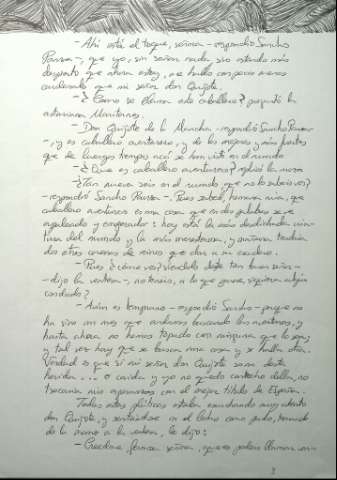 - Ahí está el toque, señora - respondió Sancho
Panza -, que yo, sin señor nada, sino estando más
despierto que ahora estoy, me hallo con pocos menos
cardenales que mi señor don Quijote.
- ¿Cómo se llama este caballero? preguntó la
asturiana Maritornes.
- Don Quijote de la Mancha - respondió Sancho Panza
-, y es caballero aventurero, y de los mejores y más fuertes
que de luengos tiempos acá se han visto en el mundo
- ¿Qué es caballero aventurero? replicó la moza
- ¿Tan nueva sois en el mundo que no lo sabéis vos?
- respondió Sancho Panza -. Pues sabed, hermana mía, que
caballero aventurero es una cosa que en dos palabras se ve
apaleado y emperador: hoy está la más desdichada cria-
tura del mundo y la más menesterosa, y mañana tendrá
dos o tres coronas de reinos que dar a su escudero.
- Pues ¿cómo vos, siendolo deste tan buen señor -
- dijo la ventera -, no tenéis, a lo que parece, siquiera algún
condado?
- Aún es temprano - respondió Sancho - porque no
ha sino un mes que andamos buscando las aventuras, y
hasta ahora no hemos topado con ninguna que lo sea;
y tal vez hay que se busca una cosa y se halla otra.
Verdad es que si mi señor don Quijote sana desta
herida... o caída y yo no quedo contrecho della, no
trocaría mis esperanzas con el mejor título de España.
Todas estas pláticas estaba escuchando muy atento
don Quijote, y sentándose en el lecho como pudo, tomando
de la mano a la ventera, le dijo:
- Creedme, fermosa señora, que os podéis llamar ven-